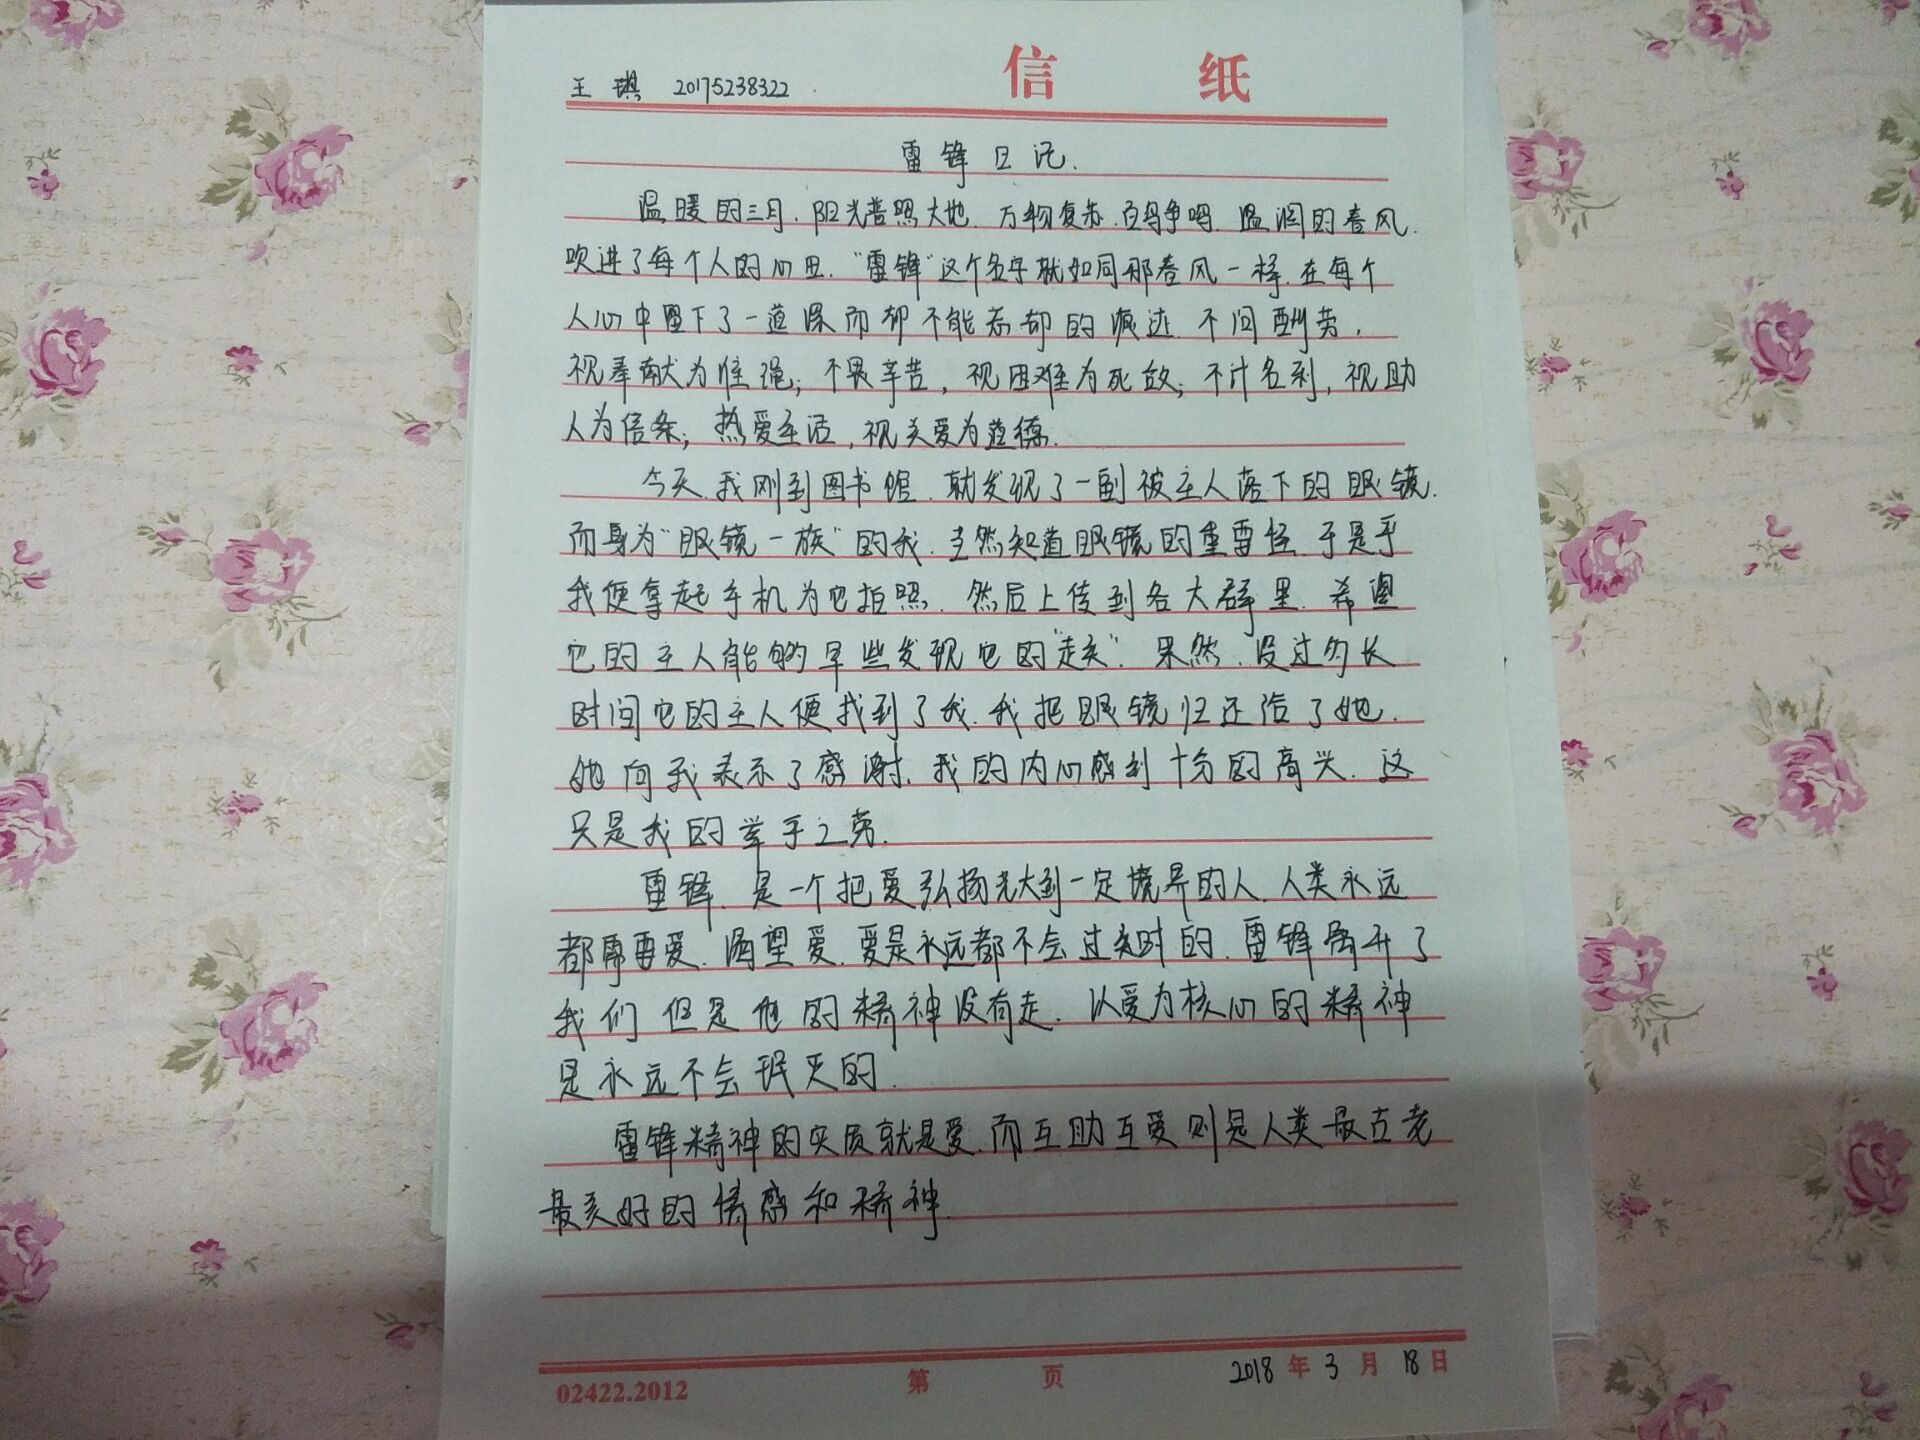 信 纸
王琪 20175238322
雷锋日记.
温暖的三月.阳光普照大地.万物复苏.百鸟争鸣.温润的春风.
吹进了每个人的心田."雷锋"这个名字就如同那春风一样.在每个
人心中留下了一道深而却不能忘却的痕迹.不问酬劳,
视奉献为准绳;不畏辛苦,视困难为死敌;不计名利,视助
人为信条;热爱生活,视关爱为道德.
今天.我刚到图书馆.就发现了一副被主人落下的眼镜.
而身为"眼镜一族"的我.当然知道眼镜的重要性.于是乎
我便拿起手机为它拍照.然后上传到各大群里.希望
它的主人能够早些发现它的"走失".果然.没过多长
时间它的主人便找到了我.我把眼镜归还给了她.
她向我表示了感谢.我的内心感到十分的高兴.这
只是我的举手之劳.
雷锋.是一个把爱弘扬光大到一定境界的人.人类永远
都需要爱.渴望爱.爱是永远都不会过时的.雷锋离开了
我们但是他的精神没有走.以爱为核心的精神
是永远不会泯灭的.
雷锋精神的实质就是爱.而互助互爱则是人类最古老
最美好的情感和精神.
02422.2012 第 页 2018年3月18日